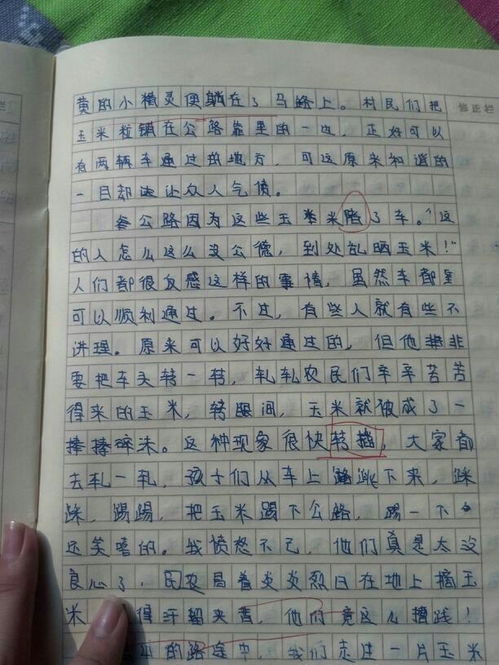 黄的小精灵便躺在了马路上。村民们把
玉米粒铺在公路靠里的一边,正好可以
有两辆车通过的地方,可这原来和谐的
一目却让众人气愤。
公路因为这些玉米陪了车。"这
的人怎么这么没公德,到处乱晒玉米!"
人们都很反感这样的事情,虽然车都是
可以顺利通过。不过,有些人就有些不
讲理。原来可以好好通过的,但他非
要把车头转一转,轧轧农民们辛辛苦苦
得来的玉米,转眼间,玉米就被成了一
捧捧碎沫。这种现象很快转播,大家都
去轧一轧,孩子们从车上跳下来,踩
踩,踢踢,把玉米踢下公路,踢一下
还笑嘻的。我愤怒不已,他们真是太没
良心了,民农冒着炎炎烈日在地上摘玉
米,得汗留夹背,他们竟这么撸践!
的路途中,我们走过一片玉米
修正栏